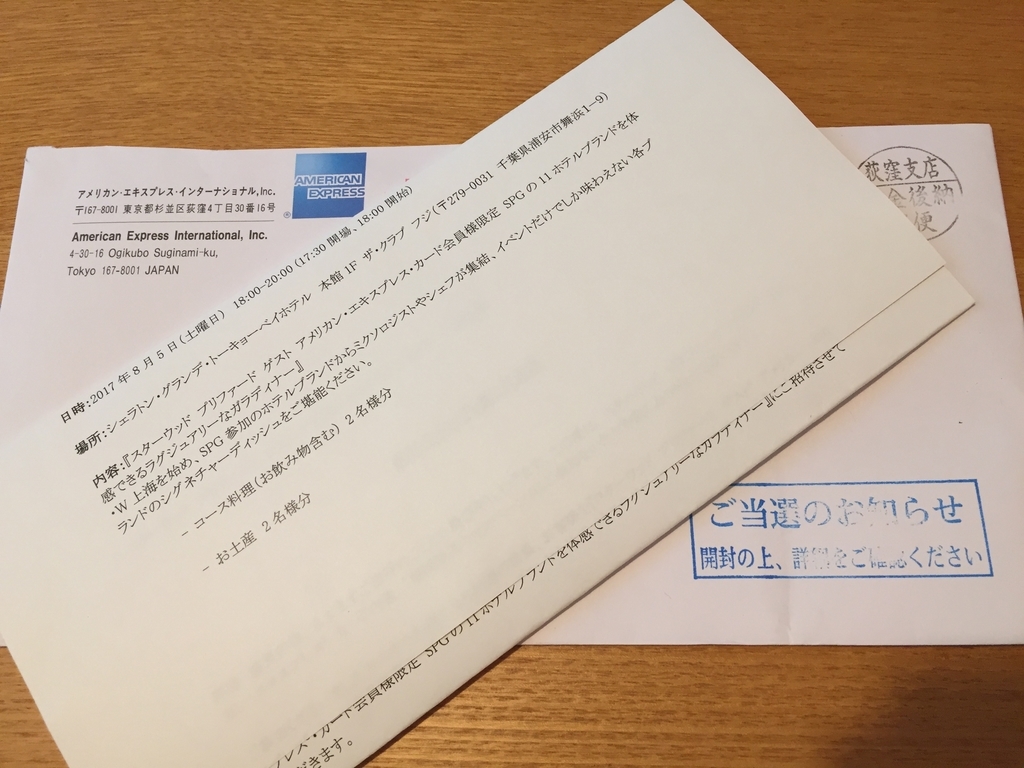 アメリカン・エキスプレス・インターナショナル,Inc.
〒167-8001 東京都杉並区荻窪4丁目30番16号
American Express International, Inc.
4-30-16 Ogikubo Suginami-ku,
Tokyo 167-8001 JAPAN
AMERICAN
EXPRESS
®
荻窪支店
金後納
便
日時:2017年8月5日(土曜日) 18:00-20:00 (17:30 開場、18:00 開始)
場所:シェラトン・グランデ・トーキョーベイホテル 本館1F ザ・クラブ フジ(〒279-0031 千葉県浦安市舞浜1-9)
内容:『スターウッド プリファード ゲスト アメリカン・エキスプレス・カード会員様限定 SPGの11ホテルブランドを体
感できるラグジュアリーなガラディナー』
・W上海を始め、SPG参加のホテルブランドからミクソロジストやシェフが集結、イベントだけでしか味わえない各ブ
ランドのシグネチャーディッシュをご堪能ください。
- コース料理(お飲み物含む) 2名様分
- お土産 2名様分
レス・カード会員様限定 SPGの11ホテルブランドを体感できるラグジュアリーなガラディナー』にご招待させて
できます。
ご当選のお知らせ
開封の上、詳細をご確認ください